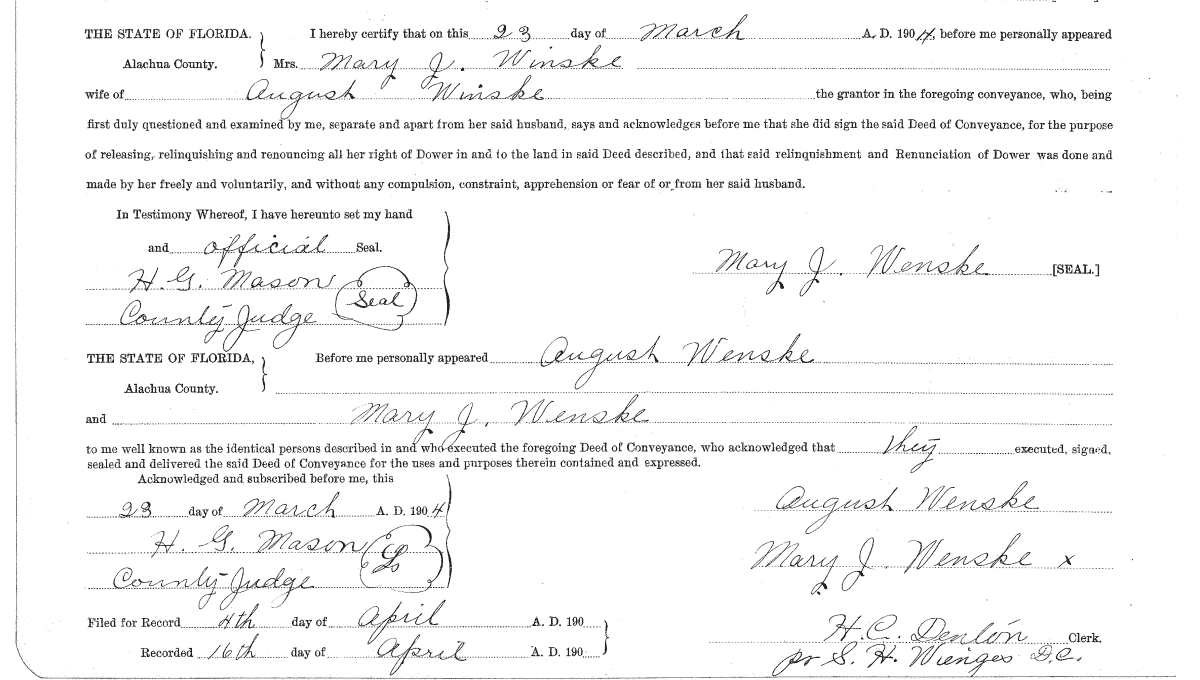 THE STATE OF FLORIDA. I hereby certify that on this 23 day of March A. D. 1904, before me personally appeared
Alachua County. Mrs. Mary J. Winske
wife of August Winske the grantor in the foregoing conveyance, who, being
first duly questioned and examined by me, separate and apart from her said husband, says and acknowledges before me that she did sign the said Deed of Conveyance, for the purpose
of releasing, relinquishing and renouncing all her right of Dower in and to the land in said Deed described, and that said relinquishment and Renunciation of Dower was done and
made by her freely and voluntarily, and without any compulsion, constraint, apprehension or fear of or from her said husband.
In Testimony Whereof, I have hereunto set my hand
and official Seal.
Mary J. Wenske [SEAL.]
H. G. Mason
Seal
County Judge
THE STATE OF FLORIDA, Before me personally appeared August Wenske
Alachua County.
and Mary J. Wenske
to me well known as the identical persons described in and who executed the foregoing Deed of Conveyance, who acknowledged that they executed, signed,
sealed and delivered the said Deed of Conveyance for the uses and purposes therein contained and expressed.
Acknowledged and subscribed before me, this
23 day of March A. D. 1904
August Wenske
H. G. Mason
Mary J. Wenske x
County Judge
Filed for Record 4th day of April A. D. 190
H. C. Denton Clerk.
Recorded 16th day of April A. D. 190
pr S. H. Wienges D.C.